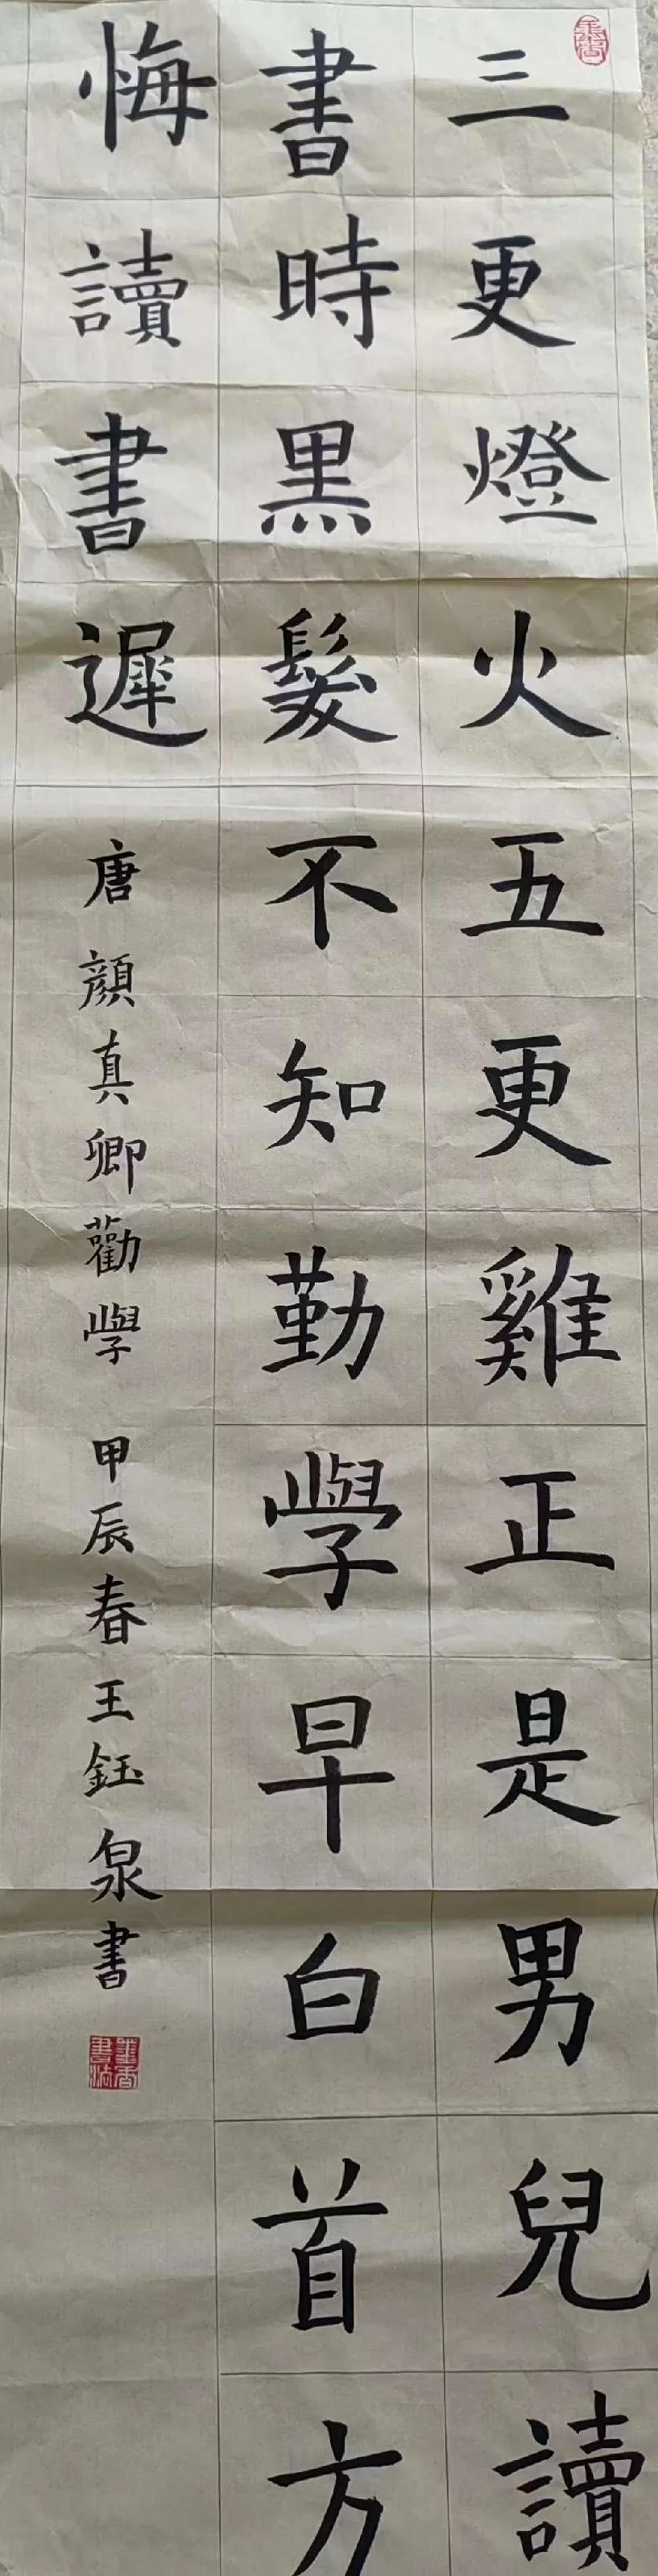 三更燈火五更雞正是男兒讀
書時黑髮不知勤學早白首方
悔讀書遲
唐顏真卿勸學 甲辰春王鈺泉書
墨香書法